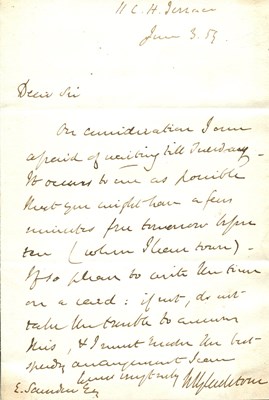 11 C. H. Terrace
June 3. 59.
Dear Sir
On consideration I am
afraid of waiting till Tuesday.
It occurs to me as possible
that you might have a few
minutes free tomorrow before
ten (when I leave town).
If so please to write the time
on a card: if not, do not
take the trouble to answer
this, & I must make the best
speedy arrangement I can
W E Gladstone
E. Saunders Esq